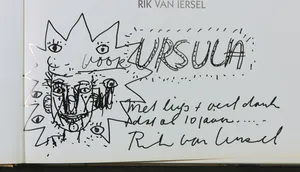 RIK VAN IERSEL
voor URSULA
met liefs + veel dank
dat al 10 jaar.....
Rik van Iersel